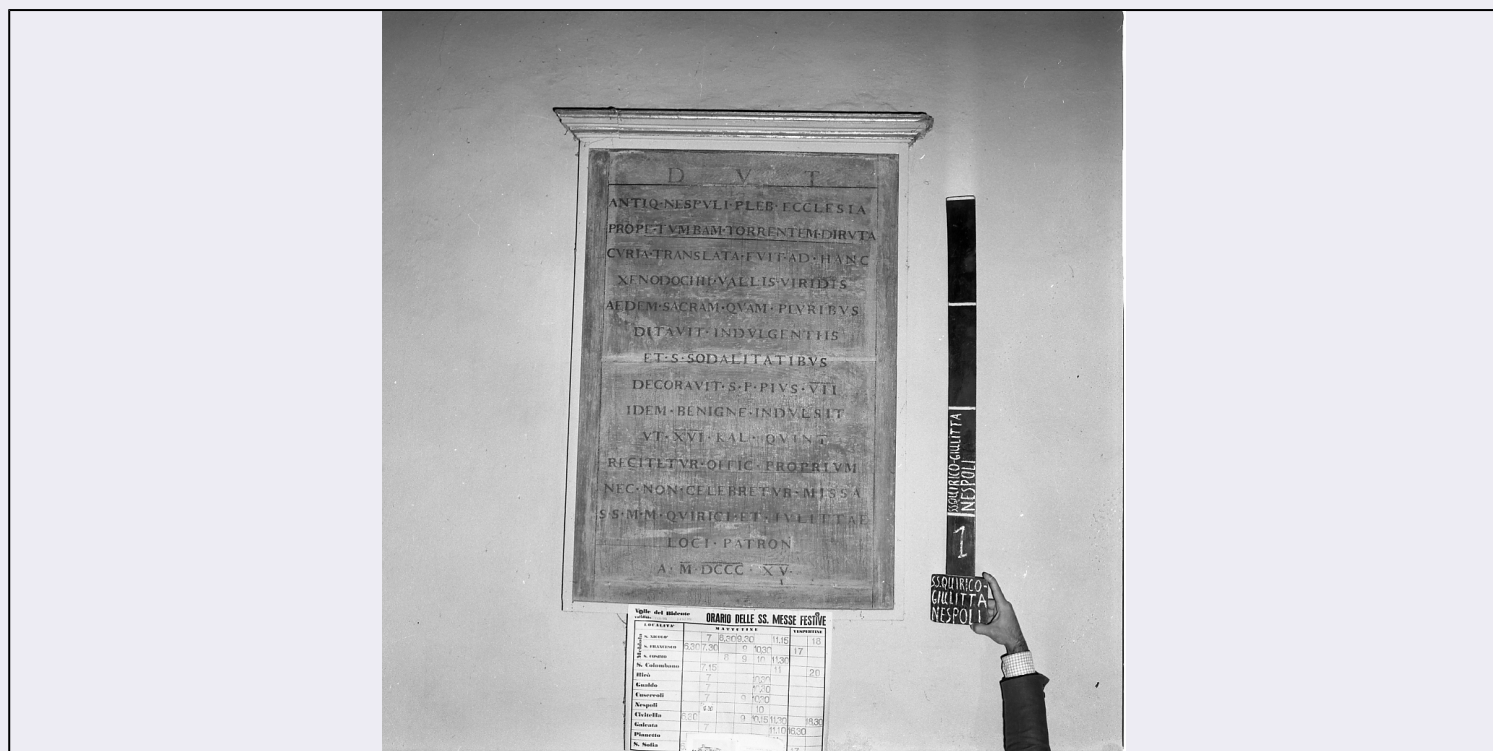 D V T
ANTIQ·NESPVLI·PLEB·ECCLESIA
PROPE·TVMBAM·TORRENTEM·DIRVTA
CVRIA·TRANSLATA·FVIT·AD·HANC
XENODOCHII·VALLIS·VIRIDIS
AEDEM·SACRAM·QVAM·PLVRIBVS
DITAVIT·INDVLGENTIIS
ET·S·SODALITATIBVS
DECORAVIT·S·P·PIVS·VII
IDEM·BENIGNE·INDVLSIT
VT·XVI·KAL·QVINT
RECITETVR·OFFIC·PROPRIVM
NEC·NON·CELEBRETVR·MISSA
S·S·M·M·QVIRICI·ET·IVLITTAE
LOCI·PATRON
A·M·DCCC·XV·
SS.QUIRICO-GIULITTA
NESPOLI
1
SS.QUIRICO-
GIULITTA
NESPOLI
Valle del Bidente
ORARIO DELLE SS. MESSE FESTIVE
LOCALITA' MATTUTINE VESPERTINE
Meldola
S. NICOLO' 7 8,30 9,30 11,15 18
S. FRANCESCO 6,30 7,30 9 10,30 17
S. COSIMO 8 9 10 11,30
S. Colombano 7,15 11 20
Ricò 7 10,30
Gualdo 7
Cusercoli 7 9
Nespoli 9,30 10
Civitella 6,30 9 10,15 11,30 18,30
Galeata 7 11,10 16,30
Pianetto
S. Sofia 17